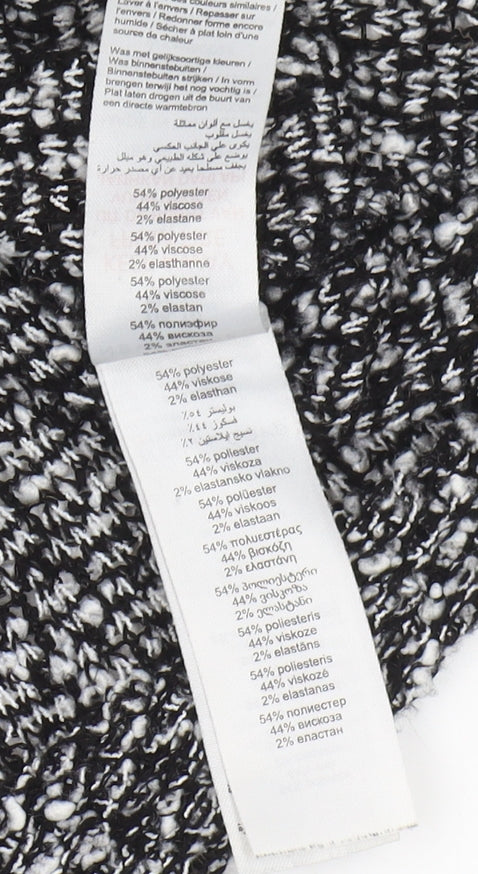 des couleurs similaires /
Laver à l'envers / Repasser sur
l'envers / Redonner forme encore
humide / Sécher à plat loin d'une
source de chaleur
Was met gelijksoortige kleuren /
Was binnenstebuiten /
Binnenstebuiten strijken / In vorm
brengen terwijl het nog vochtig is /
Plat laten drogen uit de buurt van
een directe warmtebron
يغسل مع ألوان مماثلة
يغسل مقلوب
يكوى على الجانب العكسي
يوضع على شكله الطبيعي وهو مبلل
يجفف مسطحا بعيد عن أي مصدر حرارة
54% polyester
44% viscose
2% elastane
54% polyester
44% viscose
2% elasthanne
54% polyester
44% viscose
2% elastan
54% полиэфир
44% вискоза
2% эластан
54% polyester
44% viskose
2% elasthan
بوليستر ٥٤٪
فسكوز ٤٤٪
نسيج إيلاستين ٢٪
54% poliester
44% viskoza
2% elastansko vlakno
54% polüester
44% viskoos
2% elastaan
54% πολυεστέρας
44% βισκόζη
2% ελαστάνη
54% პოლიესტერი
44% ვისკოზა
2% ელასტანი
54% poliesteris
44% viskoze
2% elastāns
54% poliesteris
44% viskozė
2% elastanas
54% полиестер
44% вискоза
2% еластан